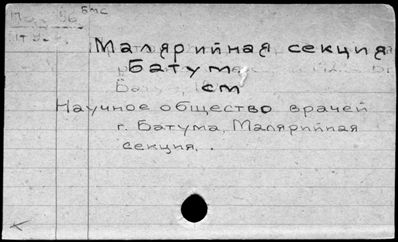 56 бмс
Малярийная секция
Батума
см
Научное общество врачей
г. Батума, Малярийная
секция.